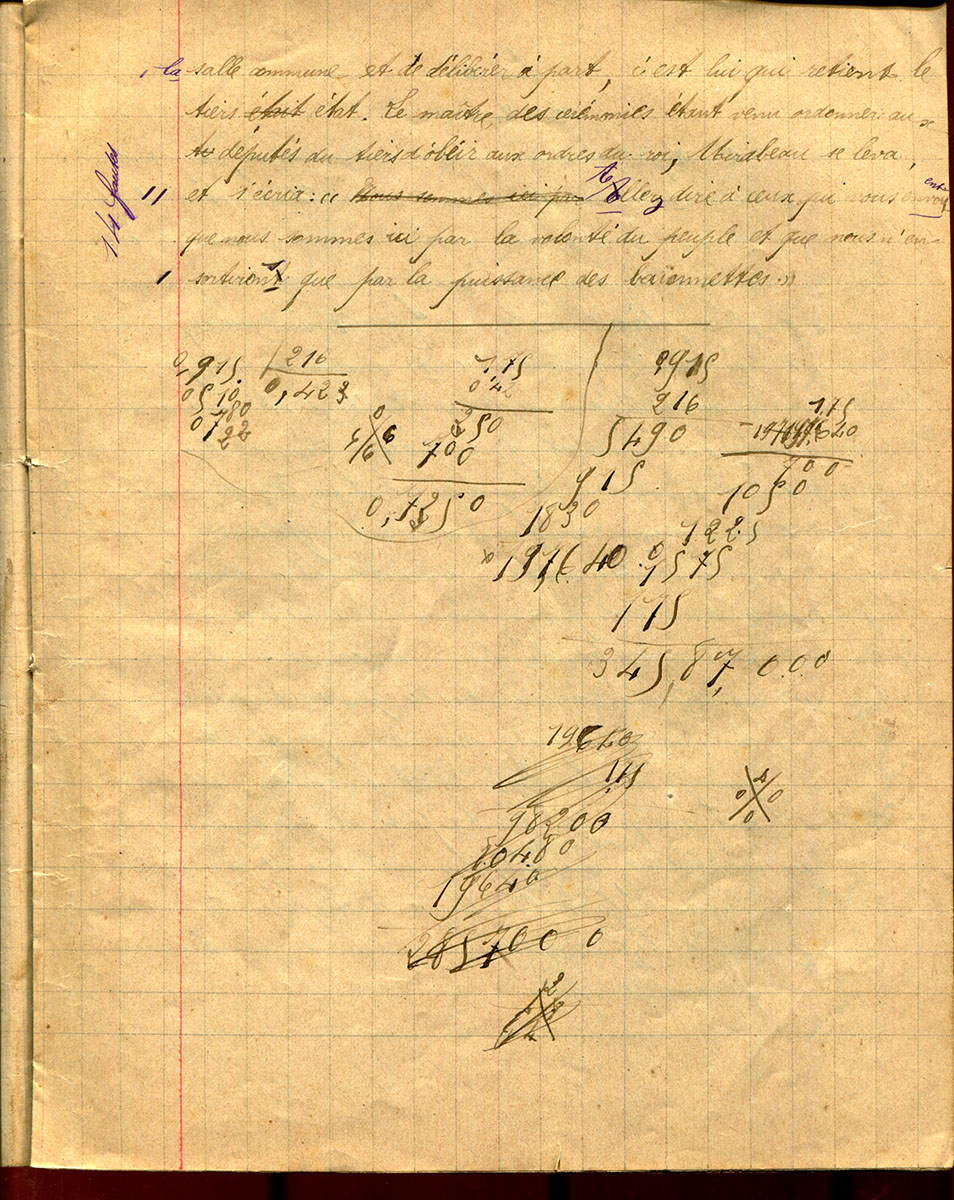 la salle commune et de délibérer à part, c'est lui qui retient le
tiers était état. Le maître des cérémonies étant venu ordonner aux
députés du tiers d'obéir aux ordres du roi, Mirabeau se leva,
et s'écria: « Nous sommes ici par Allez dire à ceux qui vous envoy
que nous sommes ici par la volonté du peuple et que nous n'en
sortiront que par la puissance des baïonnettes »
14 fautes
0,915 216
0510 0,423
0780
722
175
0,42
350
700
0,7350
0
6
6
915
216
5490
915
1830
197,640
175
700
1050
1225
1575
175
345,87,000
19640
175
98200
19640